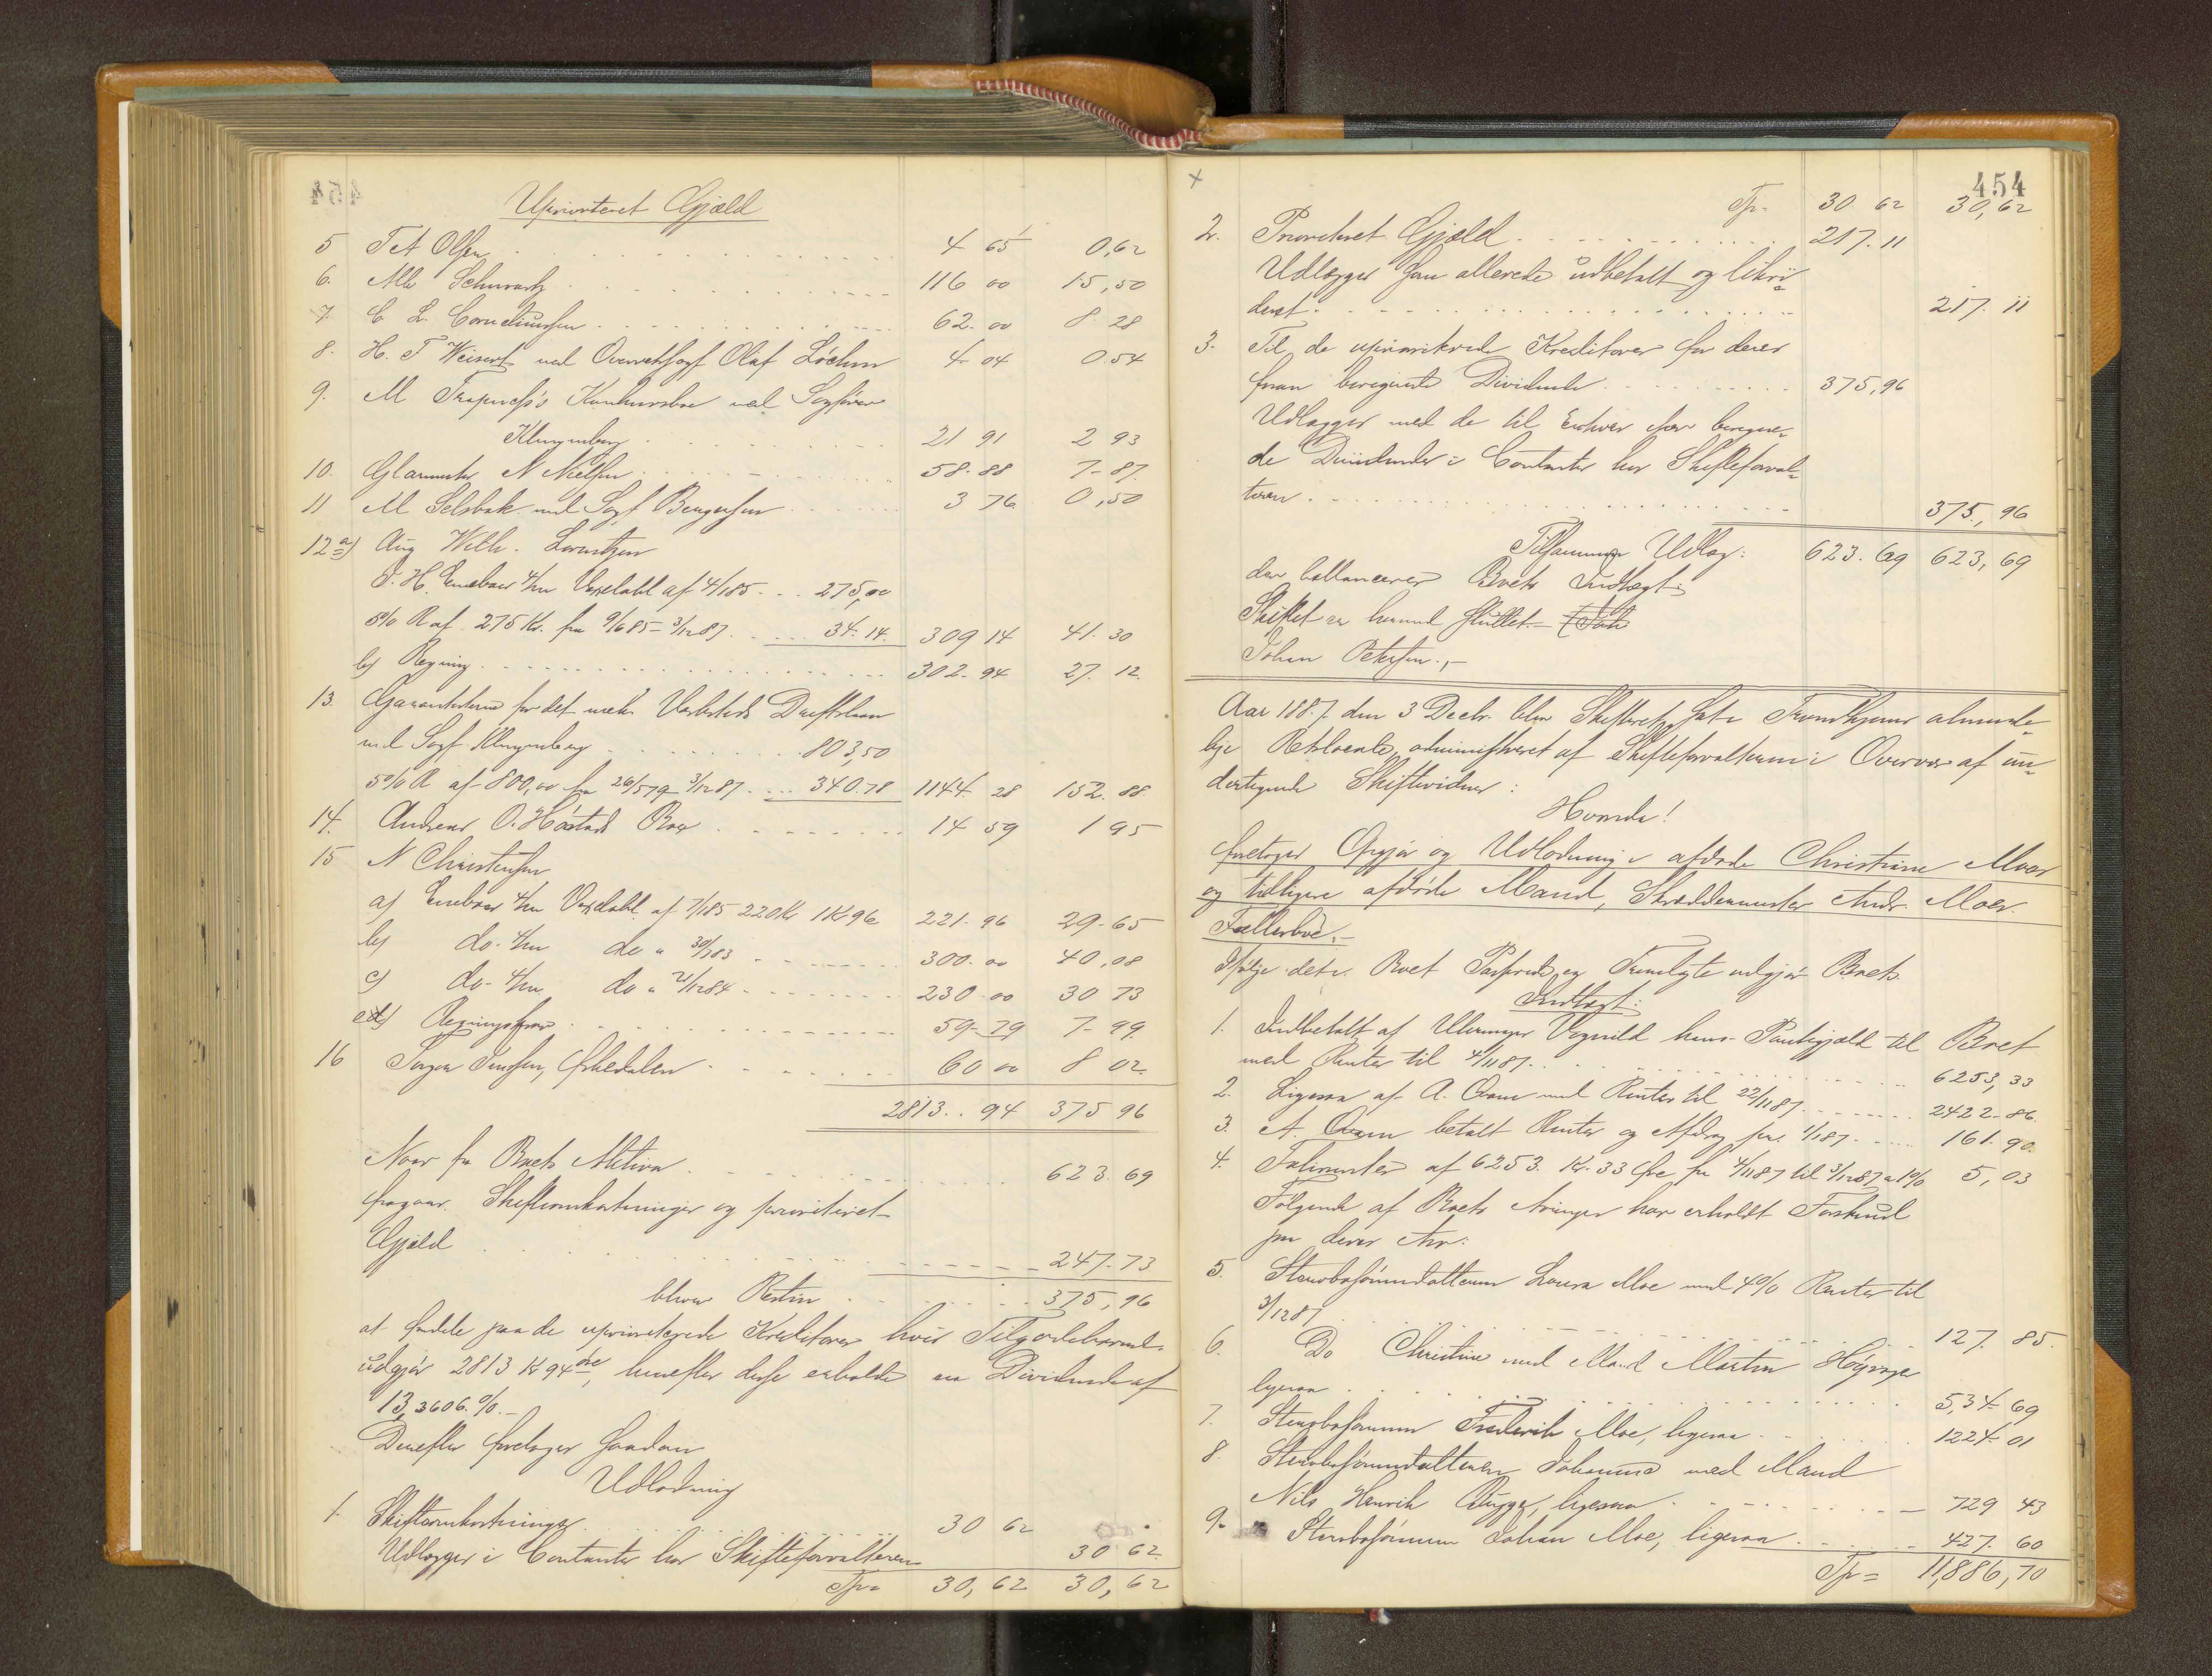 Uprioriteret Gjæld
5 T A Olsen 4 65 0,62
6. Schwartz 116 00 15,50
7. C. L. Corneliussen 62.00 8.28
8. H. T Weisert ved Overretssagf Olaf Lochen 4.04 0.54
9. M Konkursbo ved Sagfører
Klingenberg 21 91 2 93
10. Glarmester N Nielsen 58.88 7-87.
11 M Selsbak ved Sagf Bengssen 3 76 0,50
12 a) Aug Wilh. Lorentzen
Vexelobl af 4/1 85 275,00
5% R af 275 Kr. fra 9/6 85 - 3/12 87 34.14. 309 14 41.30
b) Regning 302.94 27.12.
13. Garantisterne for det mek. Værksteds Driftslaan
ved Sagf Klingenberg 803,50
5% R af 800,00 fra 26/5 79 3/12 87 340.78 1144.28 152.88.
14. Andreas O. Høstads Boe 14 59 1 95
15 N Christensen
a) Vexelobl. af 7/1 85 220 Kr 1 Kr 96 221.96 29-65
b) do. do " 30/1 83 300.00 40,08
c) do. do " 21/12 84 230.00 30 73
d) Regningskrav 59-79 7-99.
16 Jenssen, Orkedalen 60 00 8 02.
2813..94 375 96
Naar fra Boets Aktiva 623.69
fragaar Skifteomkostninger og prioriteret
Gjæld 247.73
bliver Resten 375,96
at fordele paa de uprioriterede Kreditorer hvis Tilgodehavende
udgjør 2813 Kr 94 øre, hvorefter disse erholde en Dividende af
13,3606.%.-
Derefter foretoges saadan
Udlodning
1. Skifteomkostninger 30 62
Udlægges i Contanter hos Skifteforvalteren 30 62
Tpr= 30,62 30,62
454
Tpr= 30.62 30,62
2. Prioriteret Gjæld 217.11
Udlægges som allerede udbetalt og likvi=
deret 217.11
3. Til de uprioriterede Kreditorer for deres
foran beregnede Dividende 375,96
Udlægges med de til Enhver især beregne=
de Dividender i Contanter hos Skifteforval=
teren 375,96
Tilsammen Udlæg: 623.69 623,69
der ballancerer Boets Indtægt.
Skiftet er hermed sluttet.-
Johan Petersen.,-
Aar 1887, den 3 Decbr. blev Skifteret sat i Trondhjems alminde=
lige Retslocale, administreret af Skifteforvalteren i Overvær af un=
dertegnede Skiftevidner:
Hvorda!
foretoges Opgjør og Udlodning i afdøde Christine Moes
og tidligere afdøde Mand, Skræddermester Andr. Moes
Fællesbo.-
Ifølge det i Boet Passerede og Fremlagte udgjør Boets
Indtægt:
1. Indbetalt af Vognild hans Pantegjæld til Boet
med Renter til 4/11 87 6253,33
2. Ligesaa af A. Oxaen med Renter til 22/11 87 2422-86
3. A. Oxaen betalt Renter og Afdrag pr. 1/1 87 161.90.
4. Folierenter af 6253 Kr. 33 Øre fra 4/11 87 til 3/12 87 a 1% 5,03
Følgende af Boets Arvinger har erholdt Forskud
paa deres Arv:
5. Stervbosønnedatteren Laura Moe med 4% Renter til
3/12 87 127.85
6. Do Christine med Mand Martin
ligesaa 534 69
7. Stervbosønnen Frederik Moe, ligesaa 1224 01
8. Stervbosønnedatteren Johanne med Mand
Nils Henrik Bugge, ligesaa 729 43
9. Stervbosønnen Johan Moe, ligesaa 427.60
Tpr= 11,886,70